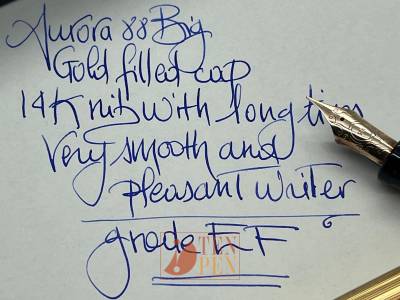 Aurora 88 Big
Gold filled cap
14K nib with long tip
Very smooth and
pleasant writer
grade EF
TEN
PEN